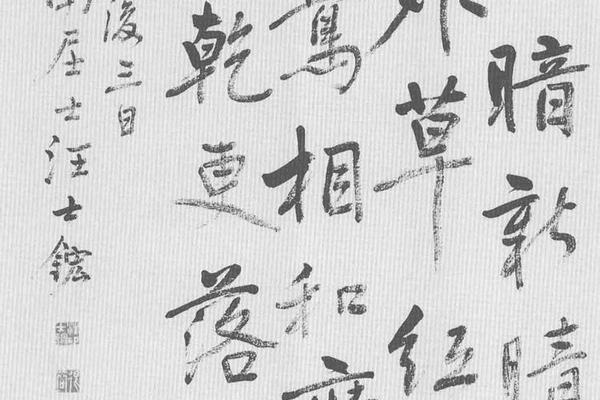 暗新晴
外草紅
相和
乾更落
後三日
居士汪士鋐